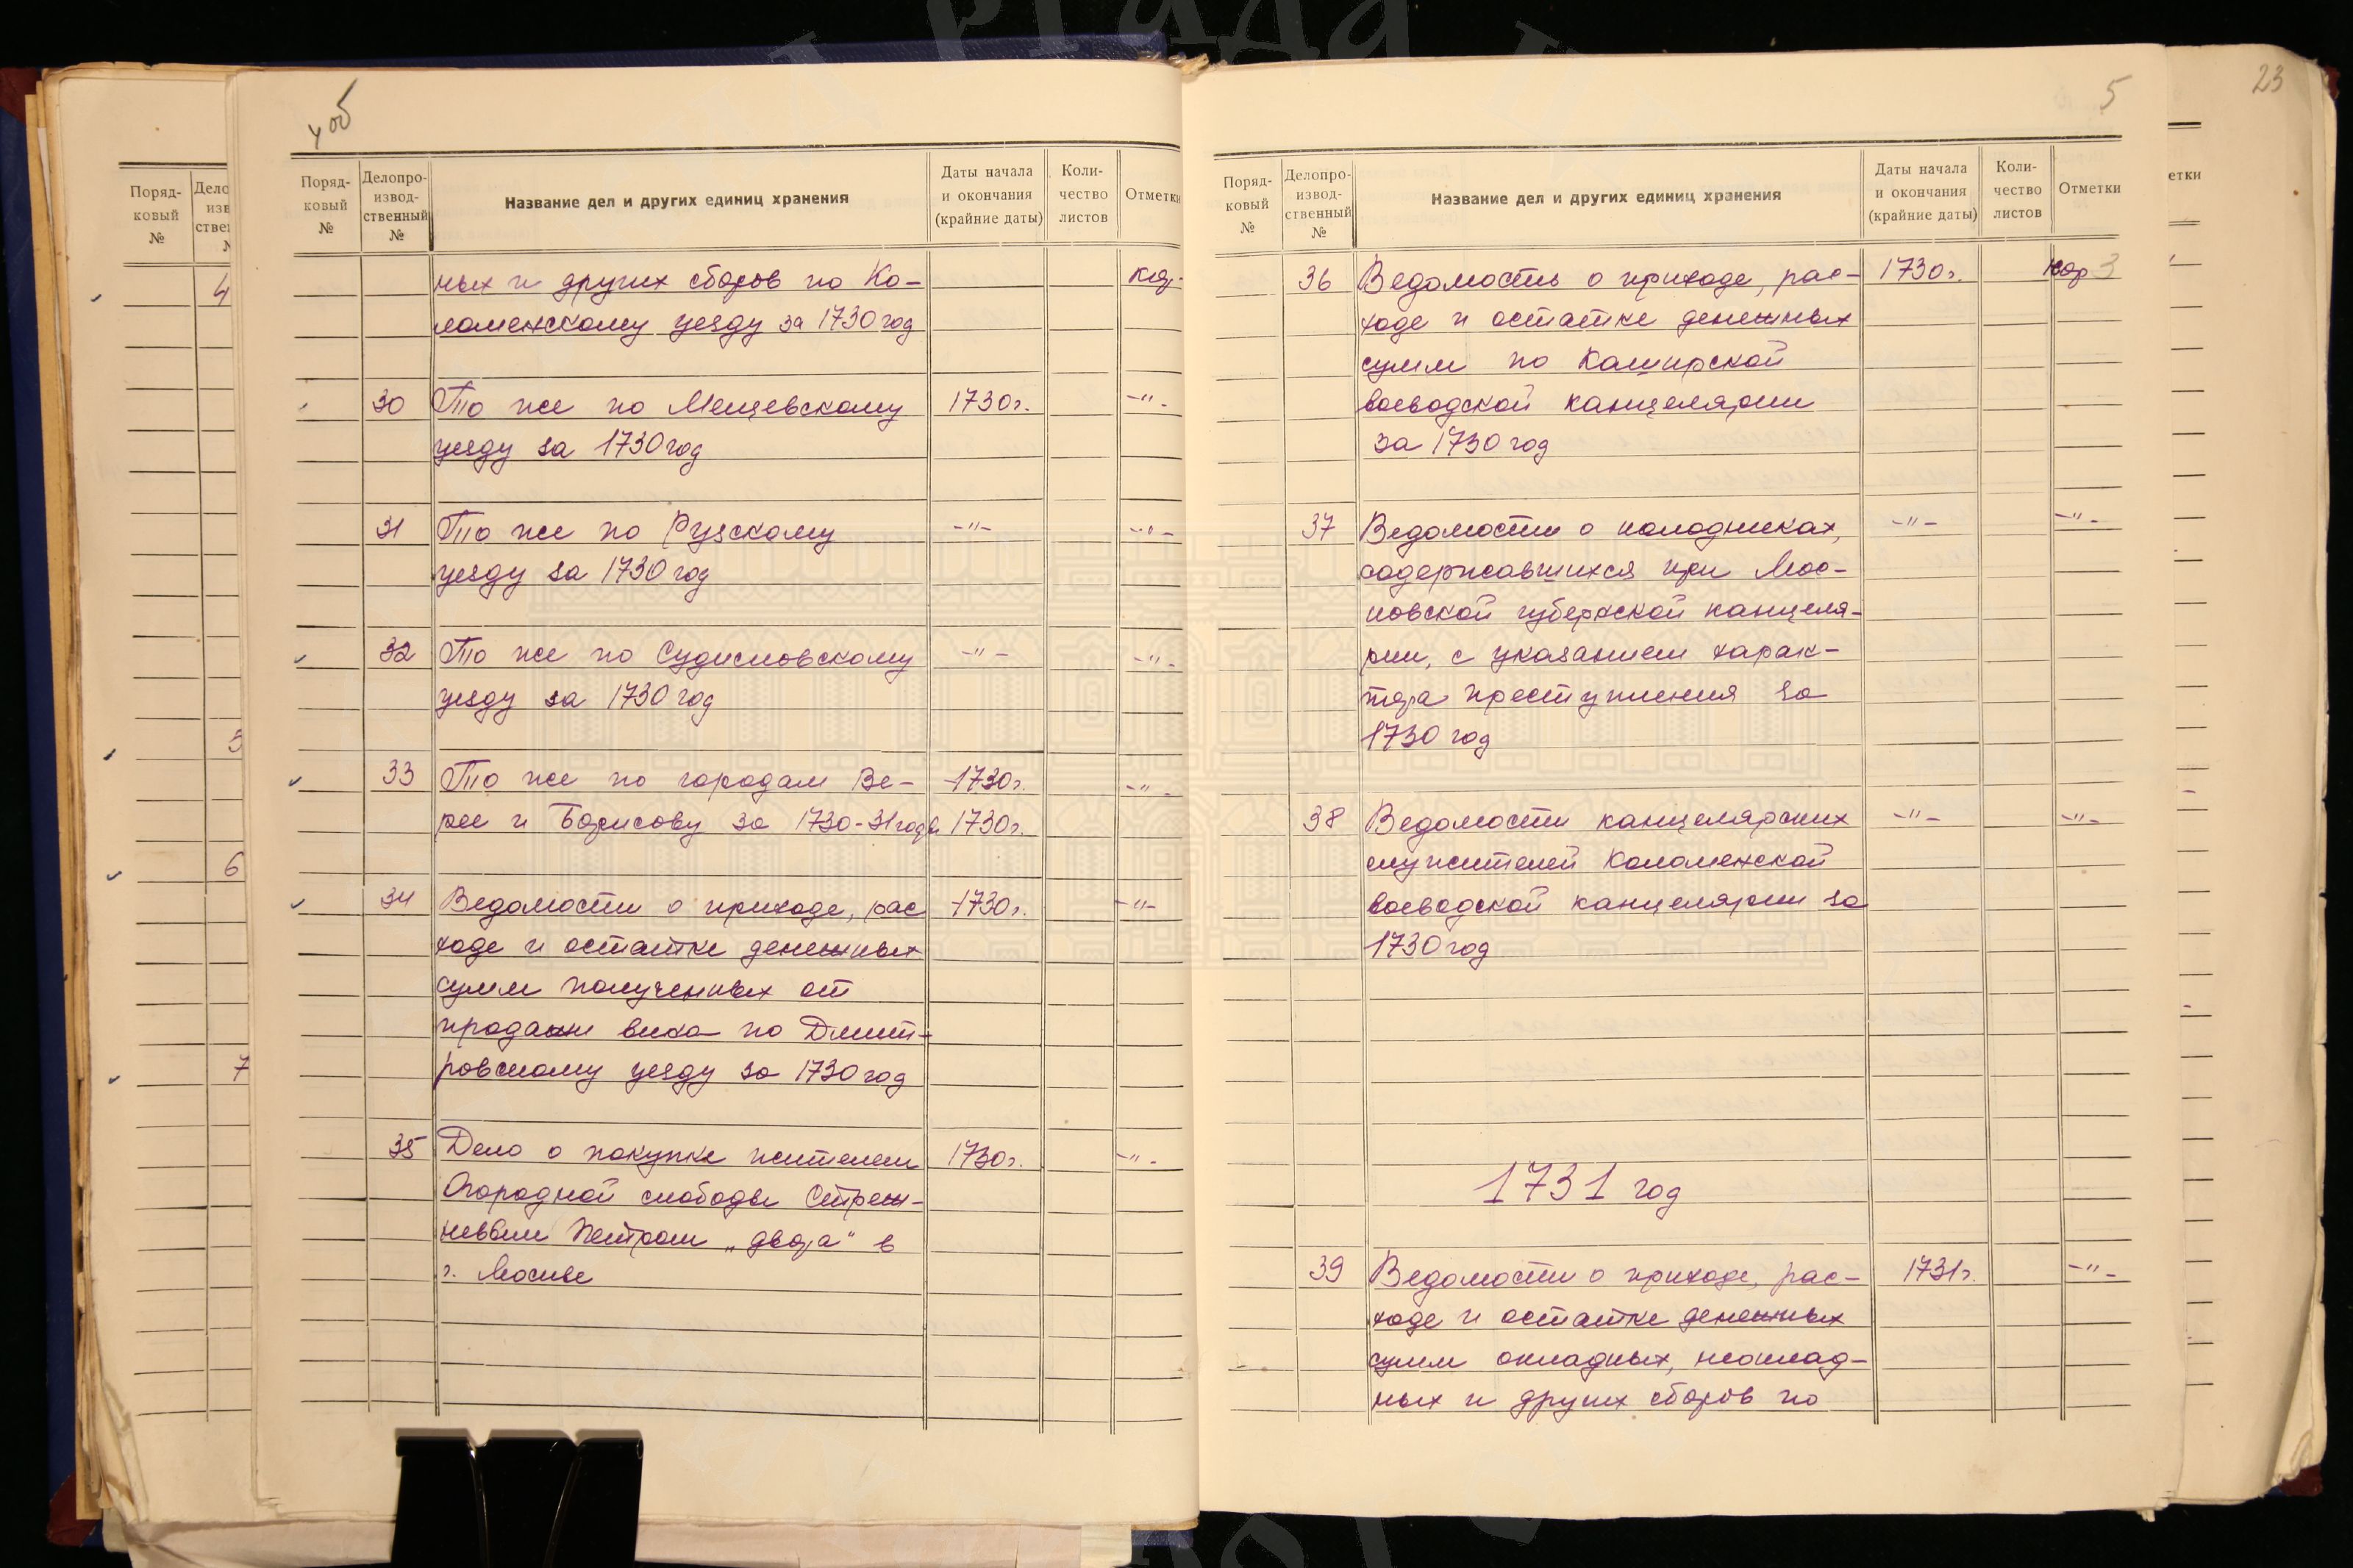 4об
Поряд-
ковый
№
Делопро-
извод-
ственный
№
Название дел и других единиц хранения
Даты начала
и окончания
(крайние даты)
Коли-
чество
листов
Отметки
ных и других сборов по Ко-
ломенскому уезду за 1730 год
30 То же по Мещевскому 1730г. -"-
уезду за 1730 год
31 То же по Рузскому -"- -"-
уезду за 1730 год
32 То же по Судисловскому -"- -"-
уезду за 1730 год
33 То же по городам Ве- 1730г. -"-
рее и Борисову за 1730-31 года 1730г.
34 Ведомости о приходе, рас 1730г. -"-
ходе и остатке денежных
сумм полученных от
продажи вина по Дмит-
ровскому уезду за 1730 год
35 Дело о покупке жителем 1730г. -"-
Огородной слободы Стреш-
невым Петром „двора" в
г. Москве
5
Поряд-
ковый
№
Делопро-
извод-
ственный
№
Название дел и других единиц хранения
Даты начала
и окончания
(крайние даты)
Коли-
чество
листов
Отметки
36 Ведомость о приходе, рас- 1730г.
ходе и остатке денежных
сумм по Каширской
воеводской канцелярии
за 1730 год
37 Ведомости о колодниках, -"- -"-
содержавшихся при Мос-
ковской губернской канцеля-
рии, с указанием харак-
тера преступления за
1730 год
38 Ведомости канцелярских -"- -"-
служителей Коломенской
воеводской канцелярии за
1730 год
1731 год
39 Ведомости о приходе, рас- 1731г. -"-
ходе и остатке денежных
сумм окладных, неоклад-
ных и других сборов по
23
етки
Поряд-
ковый
№
4
6
7